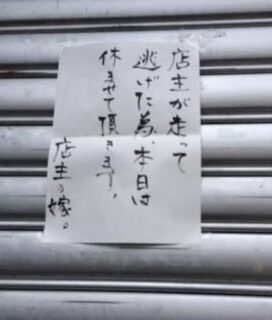 店主が走って
逃げた為、本日は
休ませて頂きます。
店主の嫁。